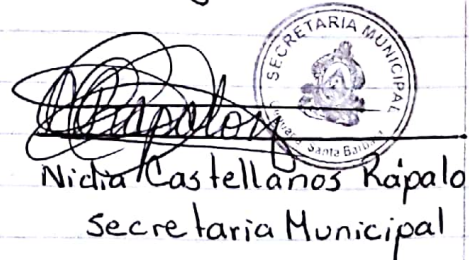 SECRETARIA MUNICIPAL
Santa Barbara
Nidia Castellanos Rápalo
Secretaria Municipal